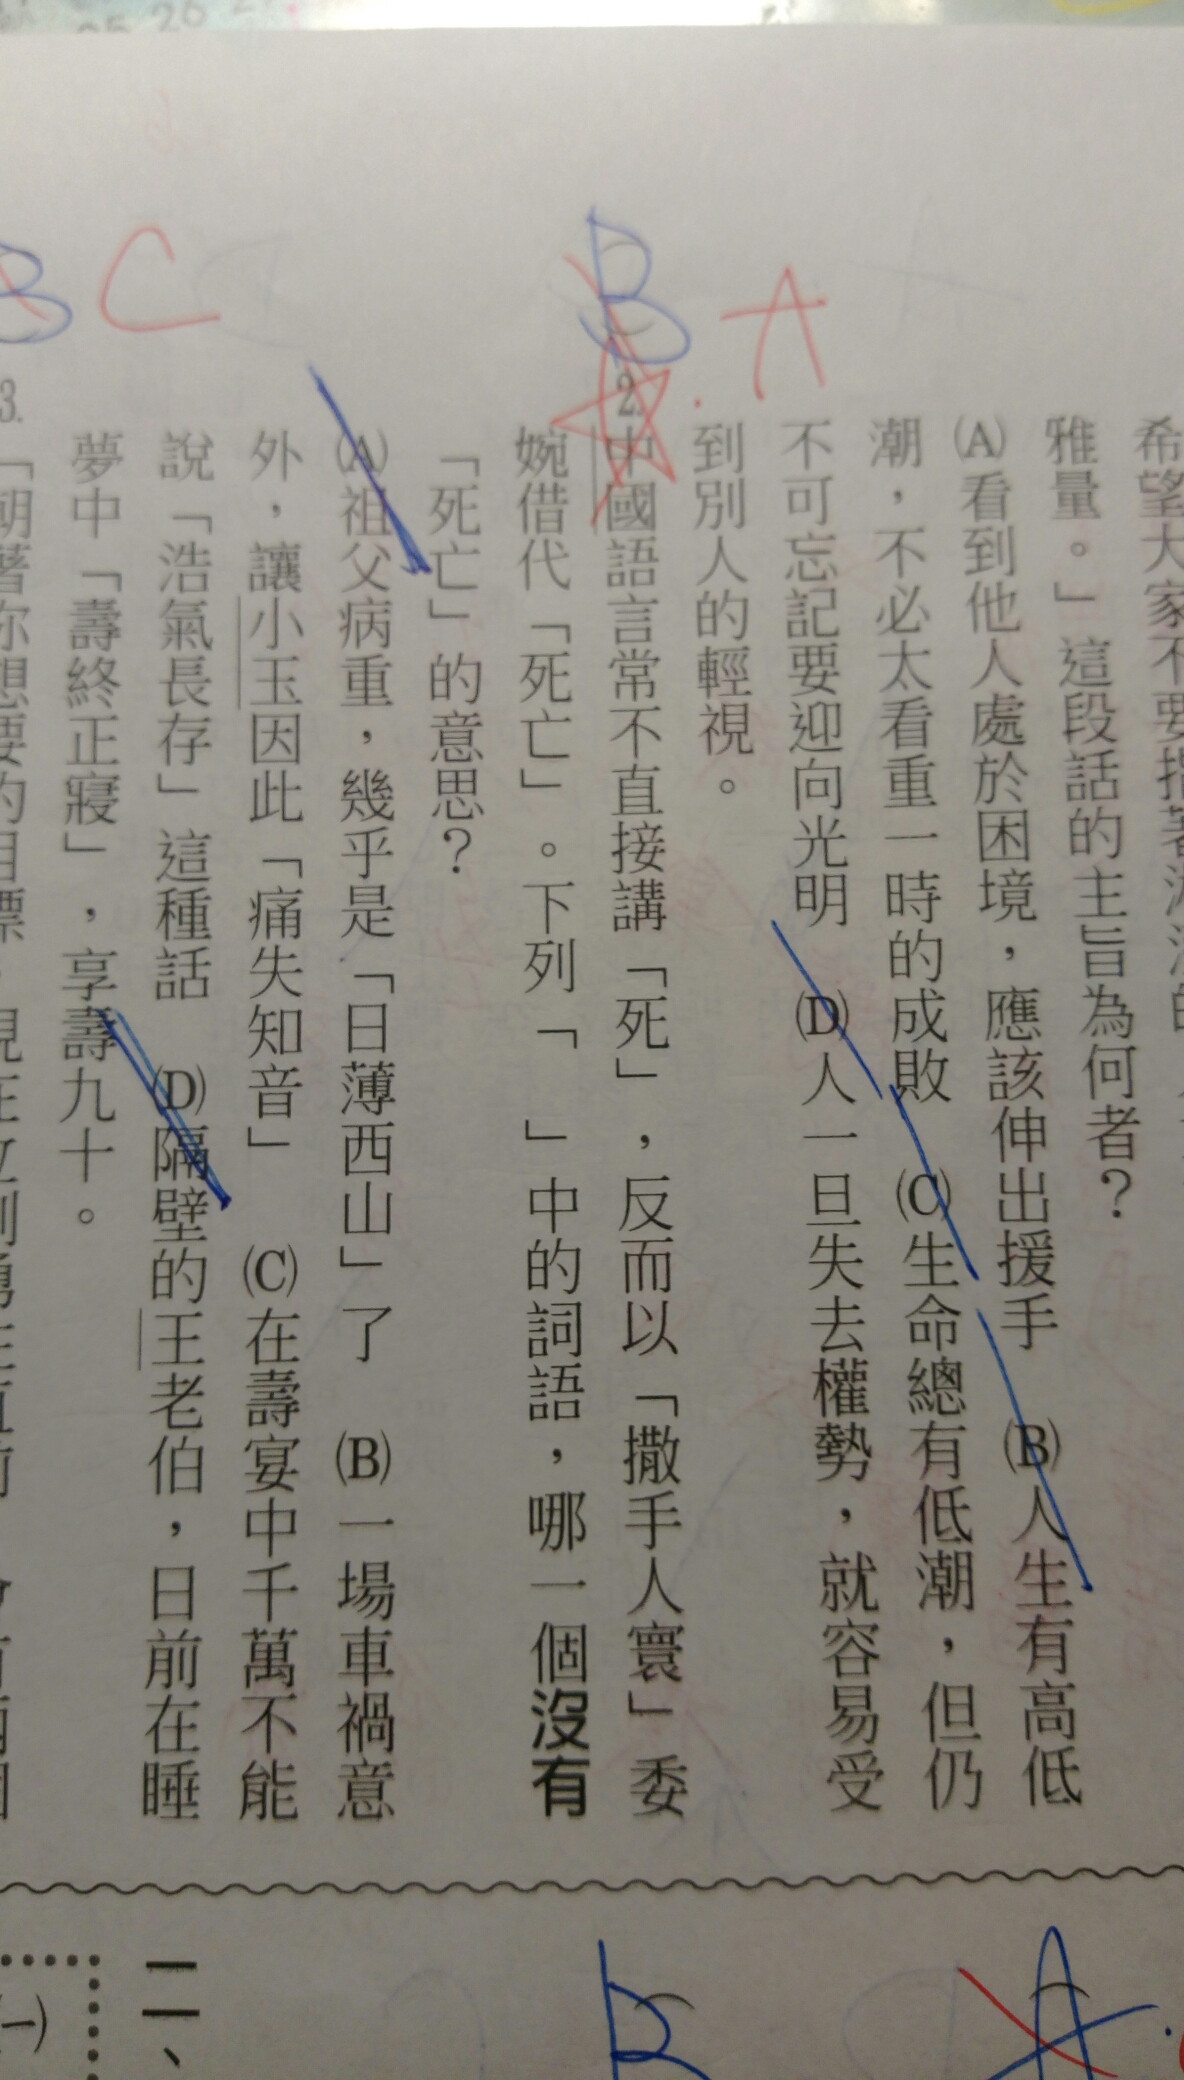 雅量。」這段話的主旨為何者？
(A)看到他人處於困境，應該伸出援手　(B)人生有高低
潮，不必太看重一時的成敗　(C)生命總有低潮，但仍
不可忘記要迎向光明　(D)人一旦失去權勢，就容易受
到別人的輕視。
A
B
2.中國語言常不直接講「死」，反而以「撒手人寰」委
婉借代「死亡」。下列「　」中的詞語，哪一個沒有
「死亡」的意思？
(A)祖父病重，幾乎是「日薄西山」了　(B)一場車禍意
外，讓小玉因此「痛失知音」　(C)在壽宴中千萬不能
說「浩氣長存」這種話　(D)隔壁的王老伯，日前在睡
夢中「壽終正寢」，享壽九十。
C
B
3.
二、
(一)
A